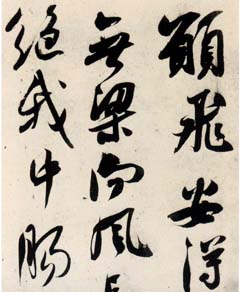 願飛安得
無梁向風
絕我中腸